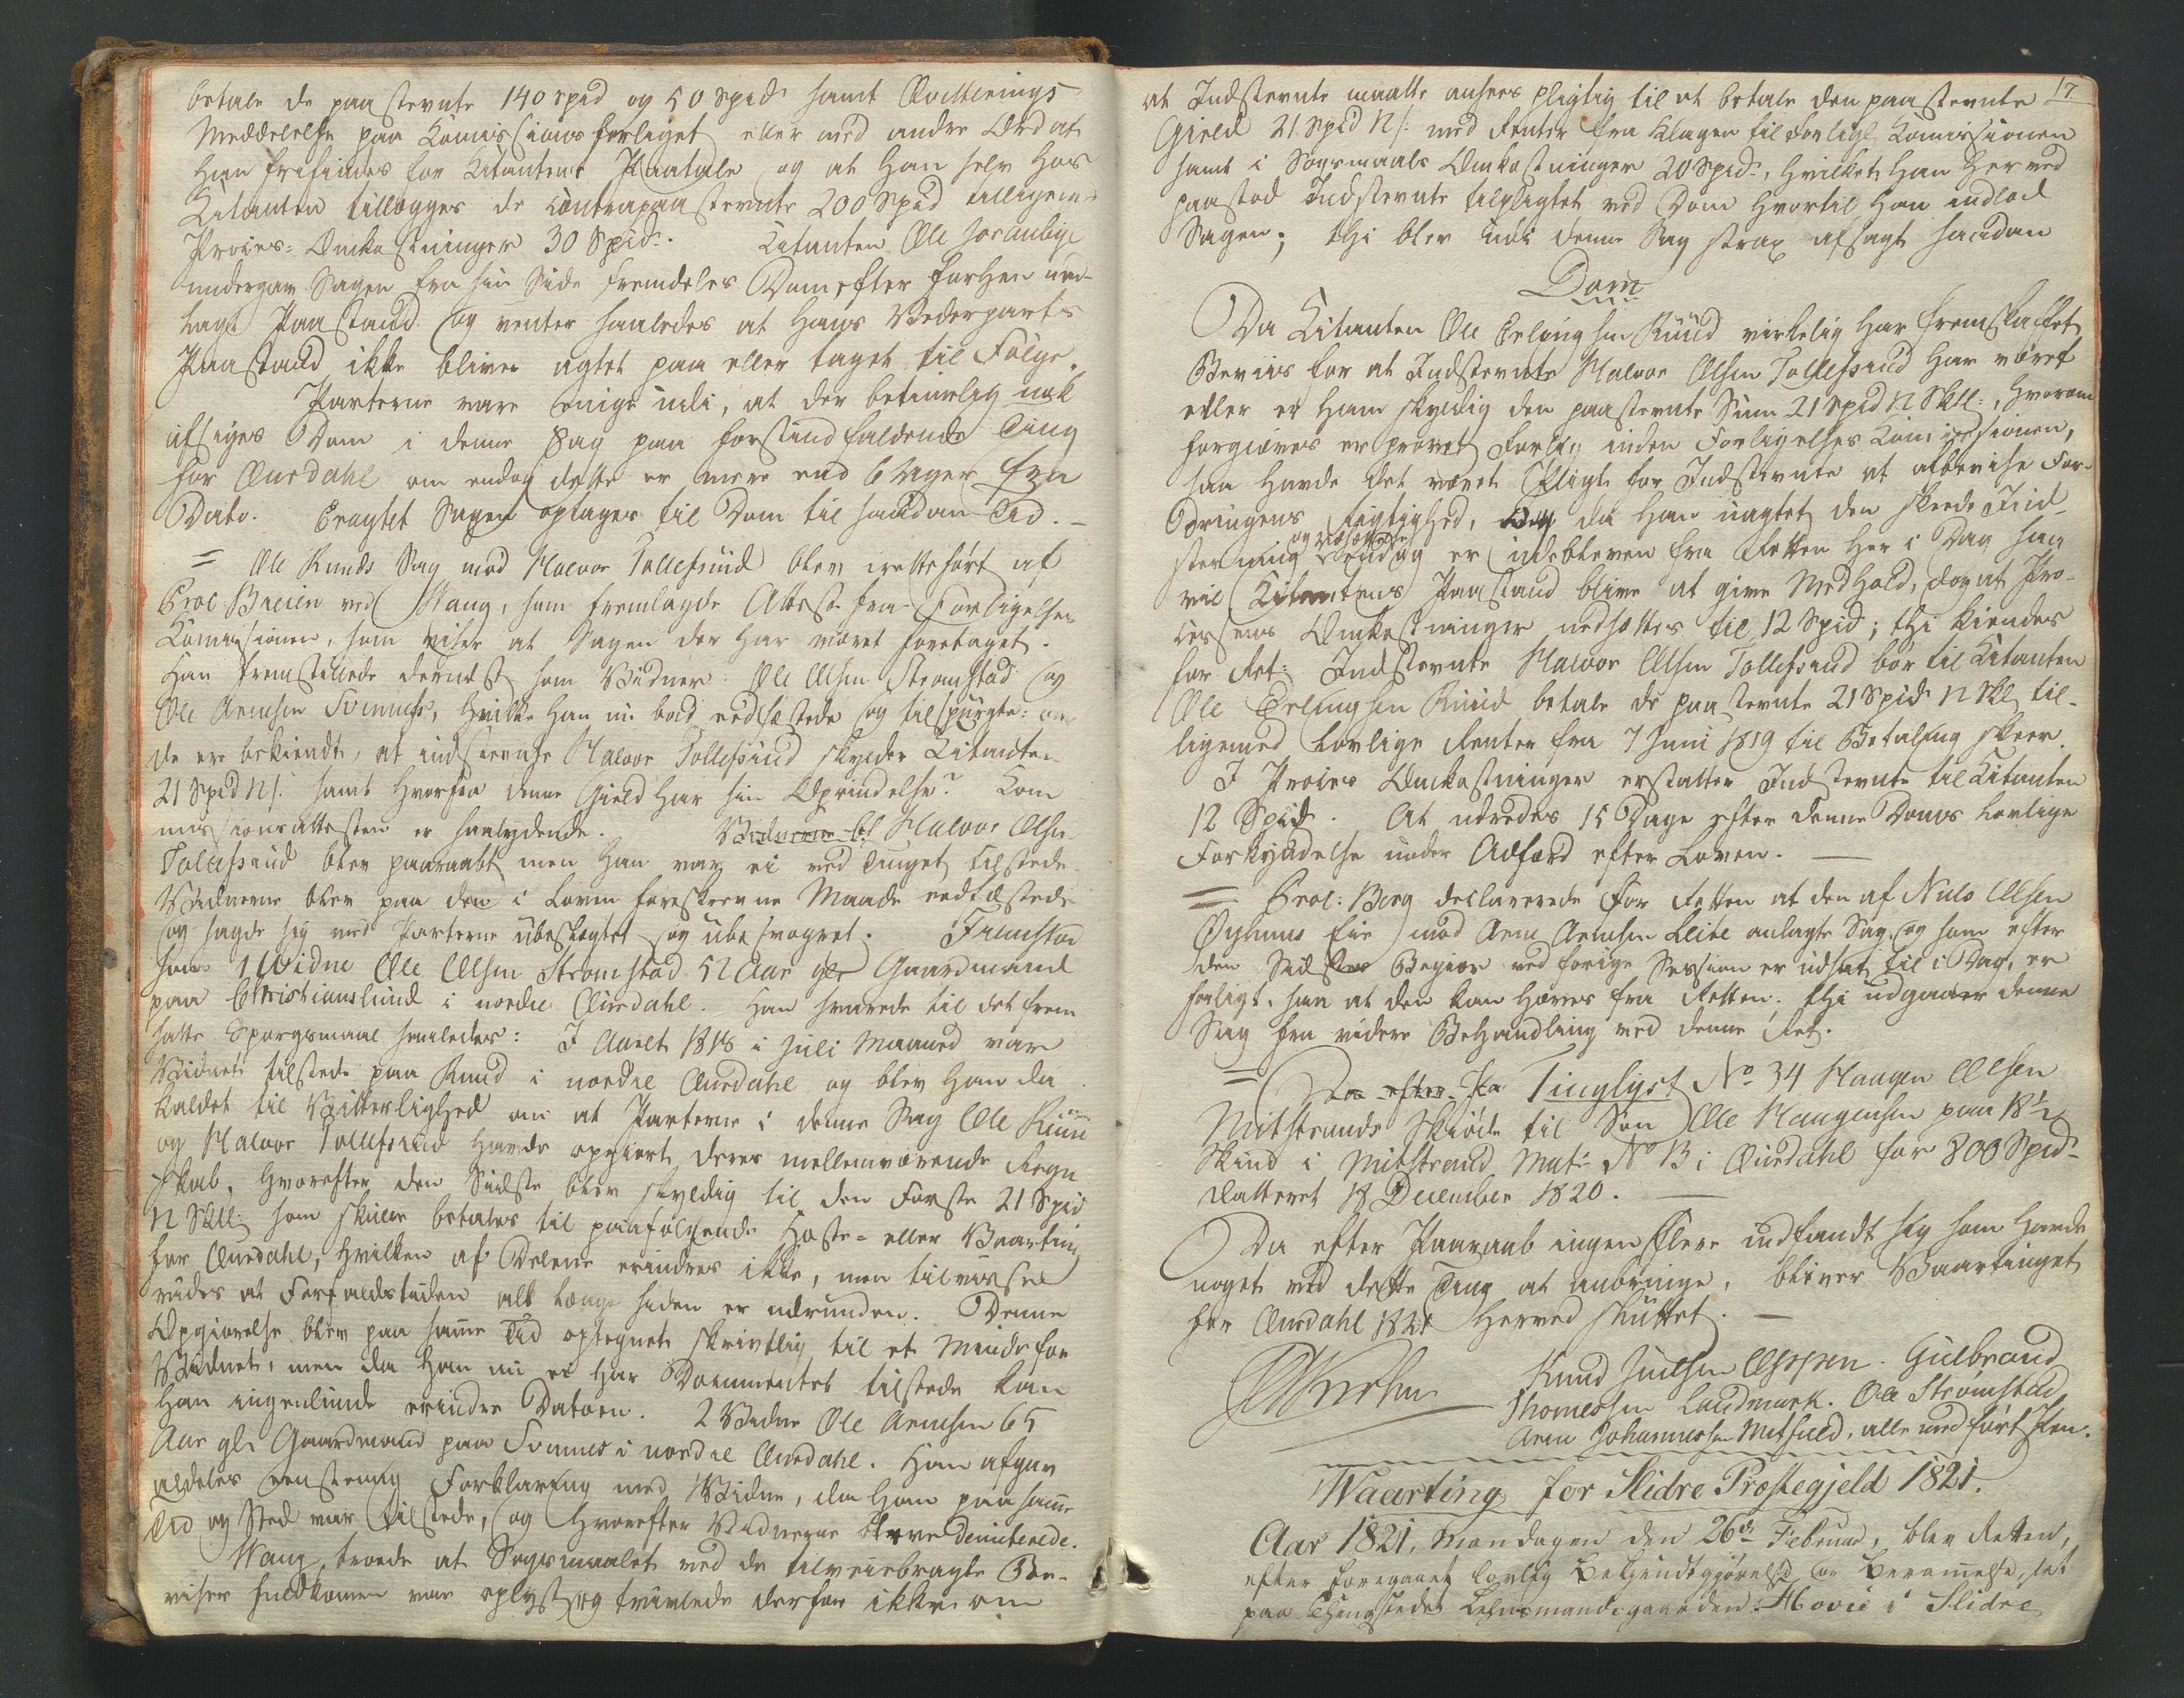 betale de paastevnte 140 Spd og 50 Spd samt Qvitterings
Meddelelse paa Commissions forliget eller med andre Ord at
han frifindes for Citantens Paatale og at han selv hos
Citanten tillægges de contrapaastevnte 200 Spd tilligemed
Proces-Omkostninger 30 Spd. Citanten Ole
undergav Sagen fra sin Side fremdeles Dom efter forhen ned-
lagt Paastand og venter saaledes at Hans Vederparts
Paastand ikke bliver agtet paa eller taget til Følge.
Parterne vare enige udi, at der betimelig nok
afsiges Dom i denne Sag paa førstindfaldende Ting
for Aurdahl om endog dette er mere end 6 Uger fra
Dato. Eragtet Sagen optages til Dom til saadan Tid. –
= Ole Ruuds Sag mod Halvor Tollefsrud blev iretteført af
Proc. Breien ved Wang, som fremlagde Attest fra Forligelses
Commissionen, som viser at Sagen der har været foretaget.
Han fremstillede dernæst som Vidner: Ole Olsen Strømstad og
Ole Arnesen Svennes, hvilke han nu bad eedfæstede og tilspurgte: om
de er bekiendt, at indstevnte Halvor Tollefsrud skylder Citanten
21 Spd 12 s: samt hvorfra denne Gield har sin Oprindelse? Com
missionsattesten er saalydende. Vidnerne bl Halvor Olsen
Tollefsrud blev paaraabt men han var ei ved Tinget tilstede
Vidnerne blev paa den i Loven foreskrevne Maade eedfæstede
og sagde sig med Parterne ubeslægtet og ubesvogret. Fremstod
som 1 Vidne Ole Olsen Strømstad 52 Aar gl: Gaardmand
paa Christianslund i nordre Aurdahl. Han svarede til det frem
satte Spørgsmaal saaledes: I Aaret 1818 i Juli Maaned var
Vidnet tilstede paa Ruud i nordre Aurdahl og blev han da
kaldet til Vitterlighed om at Parterne i denne Sag Ole Ruud
og Halvor Tollefsrud havde opgiort deres mellemværende Regn
skab, hvorefter den Sidste blev skyldig til den Første 21 Spd
12 Skll: som skulle betales til paafølgende Høste- eller Vaarting
for Aurdahl, hvilken af Delene erindres ikke, men tilvisse
vides at Forfaldstiden alt længe siden er udrunden. Denne
Opgiørelse blev paa samme Tid optegnet skrivtlig til et Minde for
Vidnet, men da han nu ei har Documentet tilstede kan
han ingenlunde erindre Datoen. 2 Vidne Ole Arnesen 65
Aar gl: Gaardmand paa Svennes i nordre Aurdahl. Han afgav
aldeles eenstemig Forklaring med 1 Vidne, da han paa samme
Tid og Sted var tilstede, og hvorefter Vidnerne bleve demitterede.
Wang troede at Søgsmaalet ved de tilveiebragte Be-
viser fuldkommen var oplyst og tvivlede derfor ikke om
17
at Indstevnte maatte ansees pligtig til at betale den paastevnte
Gield 21 Spd 12 s: med Renter fra Klagen til Forligs Commissionen
samt i Søgsmaals Omkostninger 20 Spd., hvilket han herved
paastod Indstevnte tilpligtet ved Dom hvortil han indlod
Sagen; thi blev udi denne Sag strax afsagt saadan
Dom
Da Citanten Ole Erlingsen Ruud virkelig har fremskaffet
Beviis for at Indstevnte Halvor Olsen Tollefsrud har været
eller er ham skyldig den paastevnte Sum 21 Spd 12 Skll:, hvorom
forgiæves er prøvet Forlig inden Forligelses Commissionen,
saa havde det været Pligt for Indstevnte at afbevise For-
dringens Rigtighed, Og da han uagtet den skeede Ind-
stevning endog er udebleven fra Retten her i Dag saa
vil Citantens Paastand blive at give Medhold, dog at Pro-
cessens Omkostninger nedsættes til 12 Spd; thi kiendes
for Ret: Indstevnte Halvor Olsen Tollefsrud bør til Citanten
Ole Erlingsen Ruud betale de paastevnte 21 Spd 12 Skl til-
ligemed lovlige Renter fra 7 Juni 1819 til Betaling skeer.
I Proces Omkostninger erstatter Indstevnte til Citanten
12 Spd. At udredes 15 Dage efter denne Doms lovlige
Forkyndelse under Adfærd efter Loven. –
= Proc: Berg declarerede for Retten at den af Niels Olsen
mod Arne Arnesen Leite anlagte Sag og som efter
den Sidstes Begiær ved forige Session er udsat til i Dag, er
forligt, saa at den kan hæves fra Retten. thi udgaaer denne
Sag fra videre Behandling ved denne Ret.
= Da efter Pa Tinglyst No 34 Haagen Olsen
Mitstrands Skiøde til Søn Ole Haagensen paa 18 1/2
Skind i Mitstrand Mat: No 13 i Aurdahl for 800 Spd
datteret 18 December 1820. –
Da efter Paaraab ingen Flere indfandt sig som havde
noget ved dette Ting at anbringe, bliver Vaartinget
for Aurdahl 1821 herved sluttet. –
Knud Juelsen Espen. Gulbrand
Thomessen Landmark. Ole Strømstad
Arne Johannessen Mitsuld, alle med ført Pen.
Waarting for Slidre Præstegjeld 1821.
Aar 1821, Mandagen den 26de Februar, blev Retten,
efter foregaaet lovlig Bekjendtgjørelse og Berammelse, sat
paa Thingstedet Lehnsmandsgaarden Hovie i Slidre